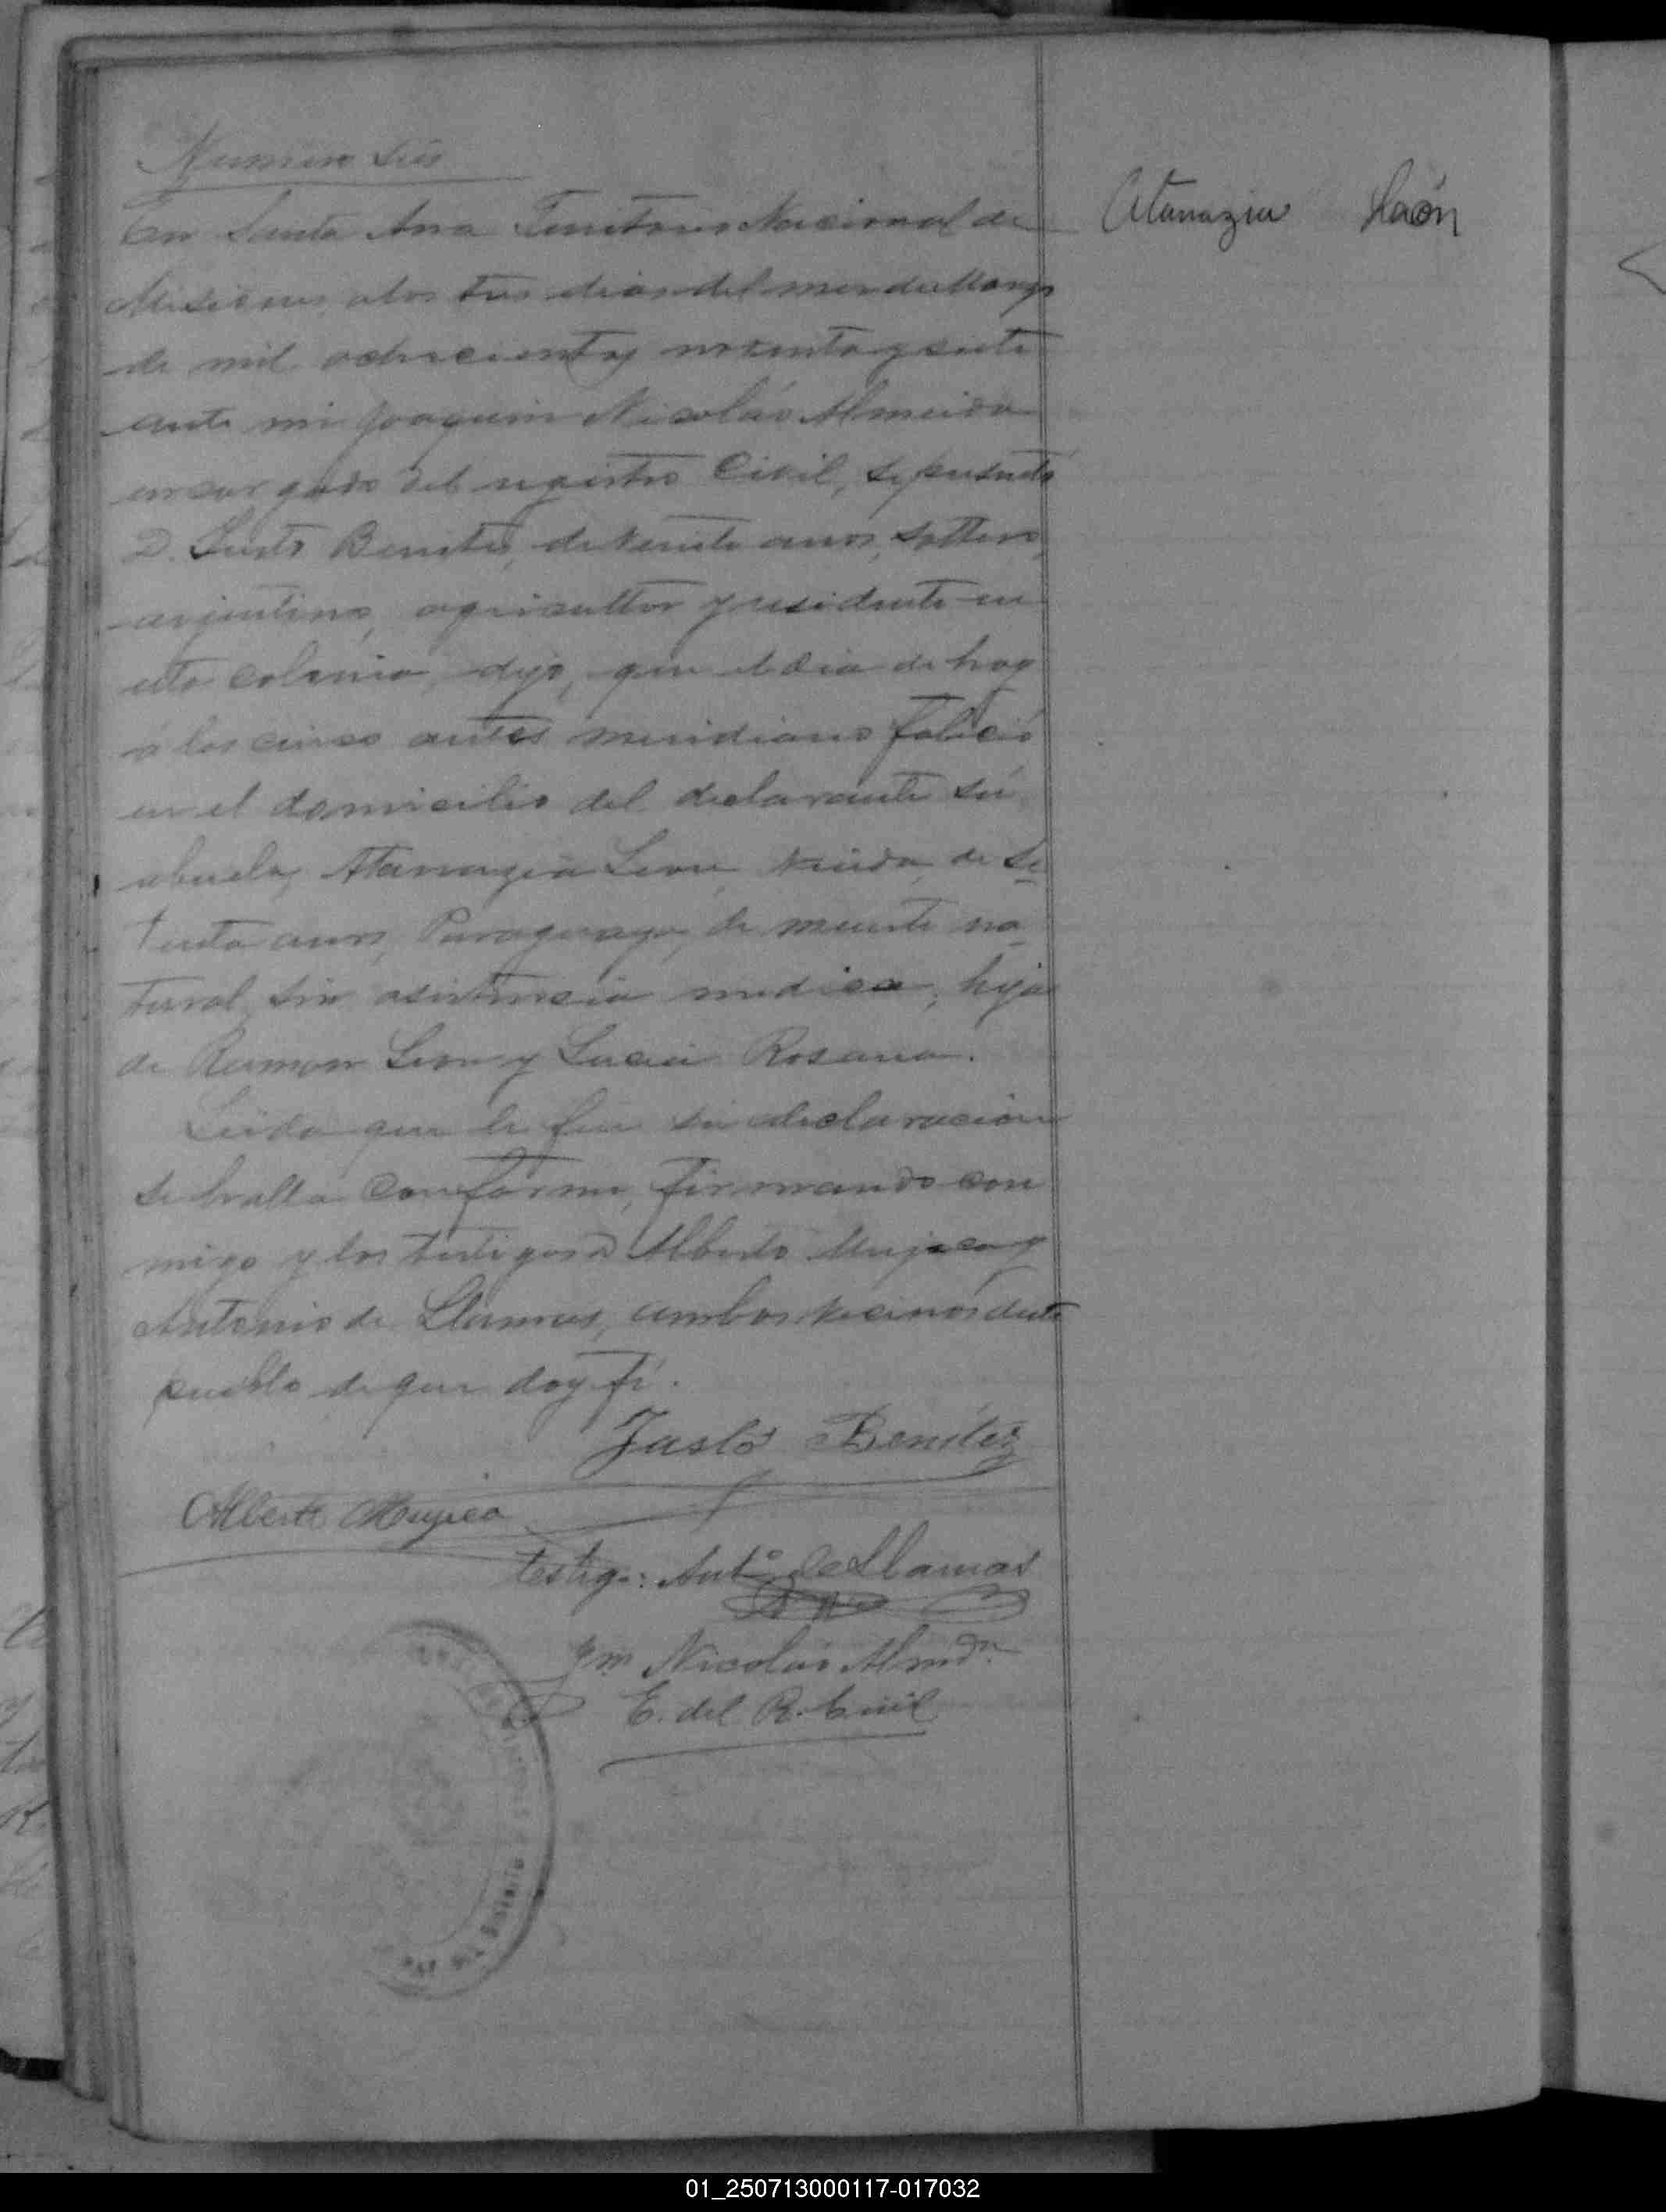 Numero seis
En Santa Ana Territorio Nacional de
Misiones, a los tres dias del mes de Marzo
de mil ochocientos noventa y siete
ante mi Joaquin Nicolás Almeida
encargado del registro Civil, se presentó
D. Justo Benites, de veinte anos, soltero,
arjentino, agricultor y residente en
esta colonia, dijo, que el dia de hoy
a las cinco antes meridiano falició
en el domicilio del declarante su
abuela, Atanazia Leon, viuda, de se
tenta anos, Paraguaya, de muerte na
tural sin asistencia medica, hija
de Ramon Leon y Lucia Rosana.
Leida que le fue su declaracion
se halla conforme, firmando con
migo y los testigos D Alberto Mujica y
Antonio de Llamas, ambos vecinos deste
pueblo de que doy fé.
Justo Benitez
Alberto Mujica
testigo: Ant.º de Llamas
Jm Nicolás Almda
E. del R. Civil
Atanazia Laón
01_250713000117-017032